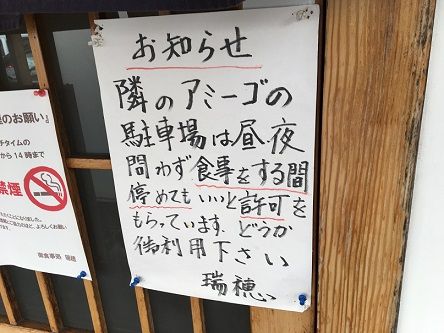 お知らせ
隣のアミーゴの
駐車場は昼夜
問わず食事をする間
停めてもいいと許可を
もらっています。どうか
御利用下さい
瑞穂
のお願い』
チタイムの
から14時まで
禁煙
御食事処 瑞穂